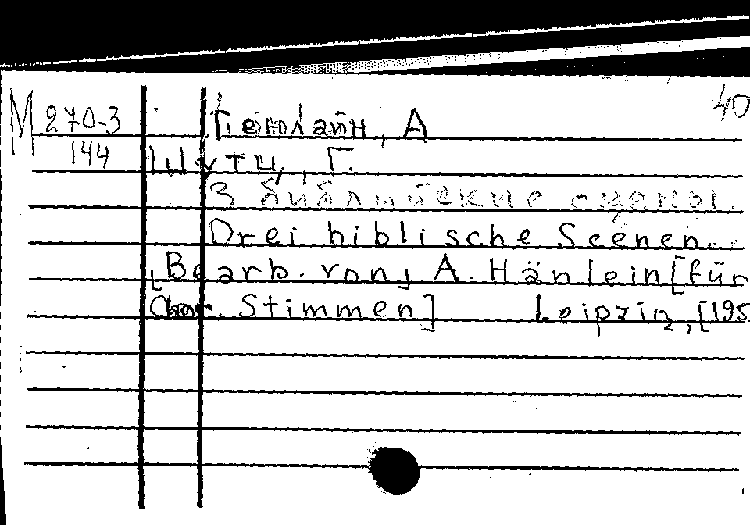 М 270-3 Генлайн, А 40
144 Шутц, Г.
3 библийские сцены.
Drei biblische Scenen.
[Bearb. von] A. Hänlein [für
Chor. Stimmen] Leipzig, [195